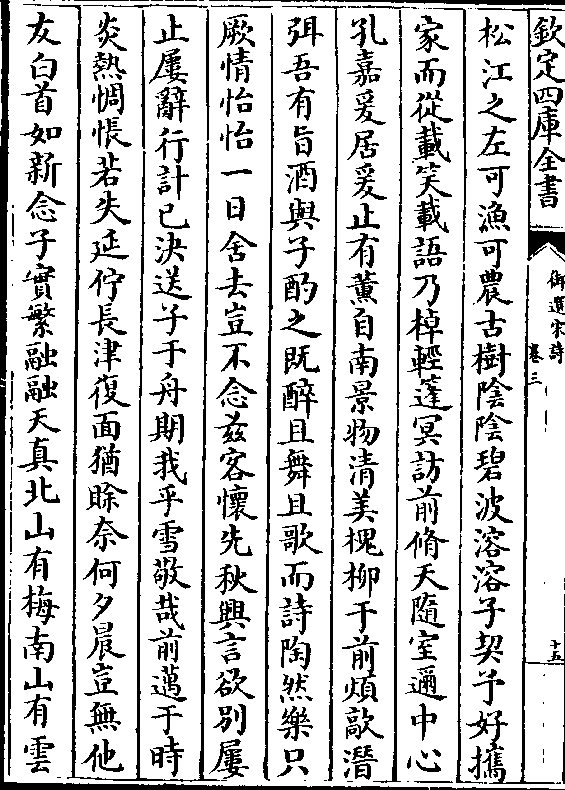 欽定四庫全書
御選宋詩
卷三
十五
松江之左可漁可農古樹陰陰碧波溶溶子契予好攜
家而從載笑載語乃棹輕篷冥訪前脩天隨室邇中心
孔嘉爰居爰止有薰自南景物清美槐柳于前煩歊潛
弭吾有旨酒與子酌之既醉且舞且歌而詩陶然樂只
厥情怡怡一日舍去豈不念兹客懷先秋興言欲别屢
止屢辭行計已決送子于舟期我乎雪敬哉前邁于時
炎熱惆悵若失延佇長津復面猶賒奈何夕晨豈無他
友白首如新念子實繁融融天真北山有梅南山有雲